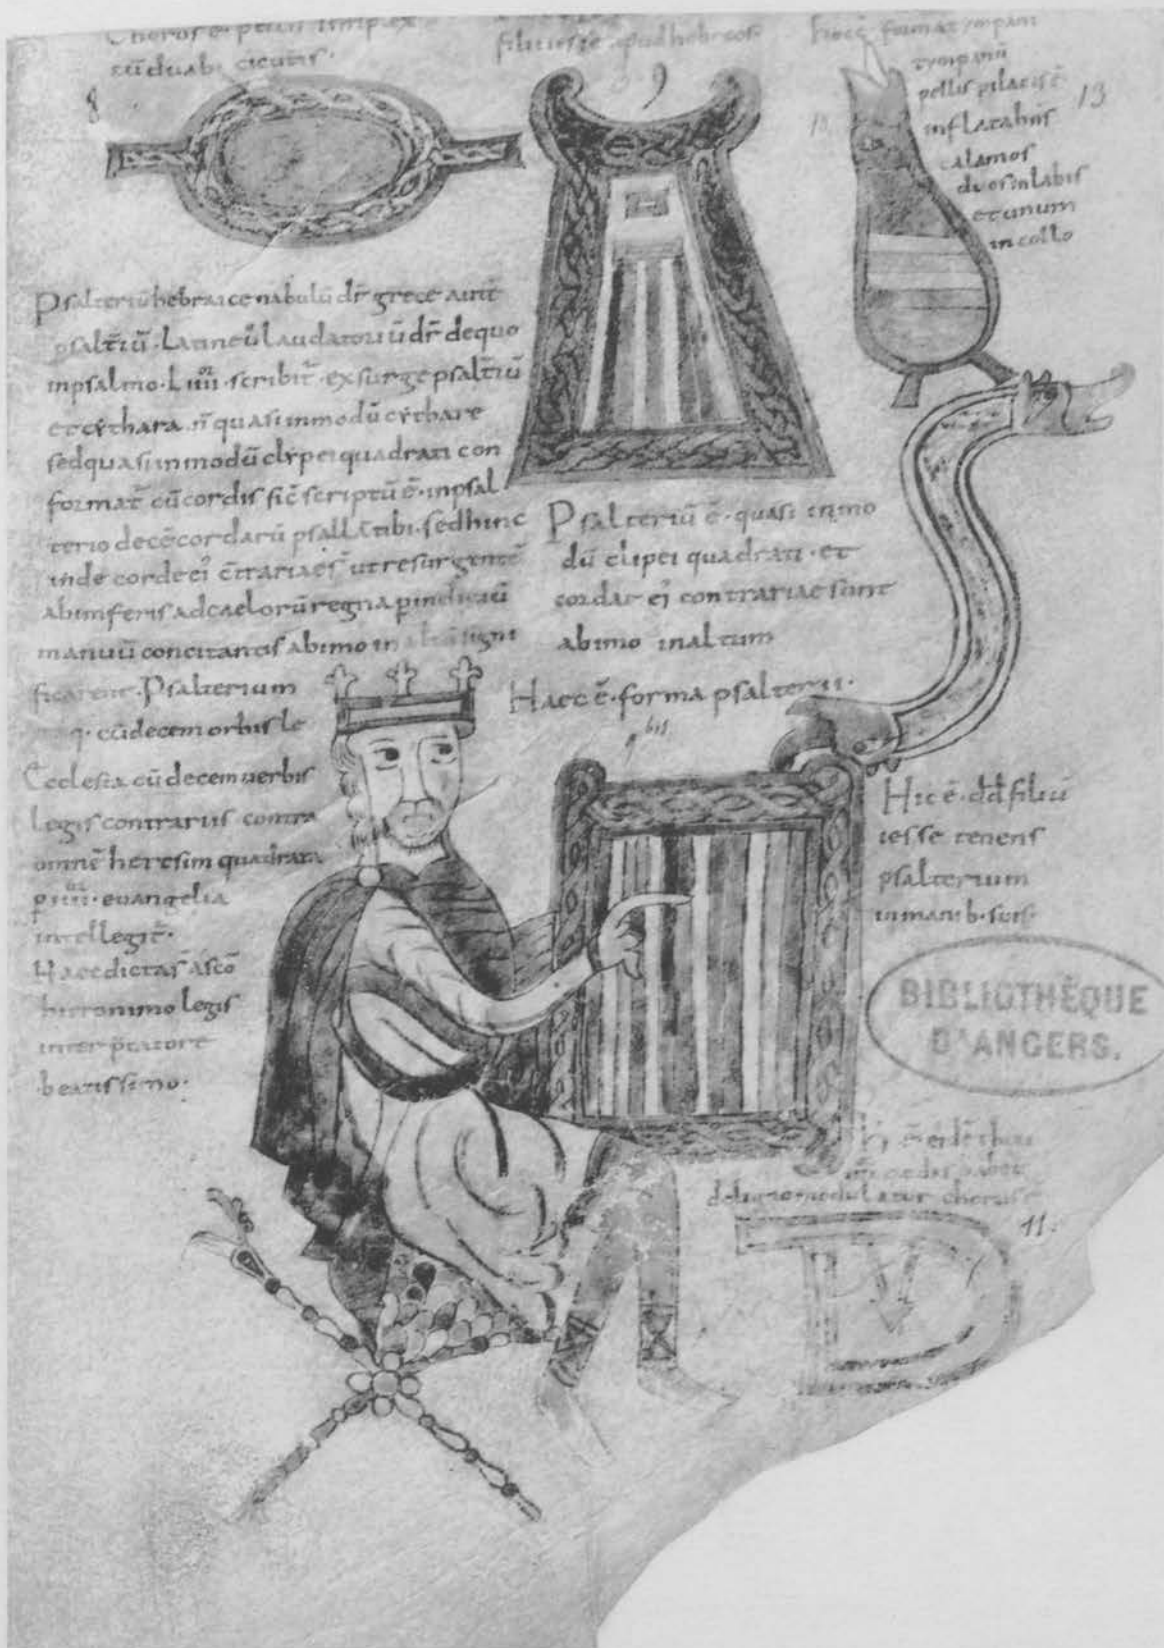 Chorus ē· pellis simplex
cū duab; cicutis·
8
filiū iesse apud hebreos
9
haec ē forma tympani
tympanū
pellis pilacis ē
inflatabilis
calamos
duos in labiis
et unum
in collo
13
Psalteriū hebraice nablū dr̄ grece autē
psalt̄iū· Latine ū laudatoriū dr̄ de quo
in psalmo· LVIII· scribit̄· exsurge psalt̄iū
et cẏthara· n̄ quasi in modū cẏthare
sed quasi in modū clẏpei quadrati con
format̄ cū cordis sic̄ scriptū ē· in psal
terio decē cordarū psallā tibi· sed hinc
inde corde ei' c̄trarie s̄ ut resurgentē
ab inferis ad caelorū regna p indicatū
manuū concitantis ab imo in altū signi
ficarent· Psalterium
q· cū decem orbis le
Ecclesia cū decem uerbis
legis contrariis contra
omnē heresim quadrata
p IIII· euangelia
intellegit̄·
Haec dicta s̄ a sc̄o
hieronimo legis
interp̄tatore
beatissimo·
Psalteriū ē· quasi in mo
dū clipei quadrati· et
cordae ei' contrariae sunt
ab imo in altum
Haec ē· forma psalterii·
9 bis
Hic ē· dd̄ filiū
iesse tenens
psalterium
in manib· suis·
BIBLIOTHÈQUE
D'ANGERS.
de ligno modulatur chorus ē
11·